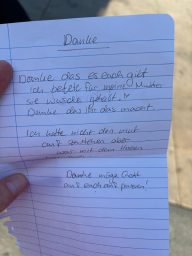 Danke
Danke das es euch giet
ich betete für meine Mutter
sie wurde geheilt.
Danke das ihr das macht.
Ich hatte nicht den mut
auf stehen aber
war mit dem
Danke möge Gott
auf euch auf passen!